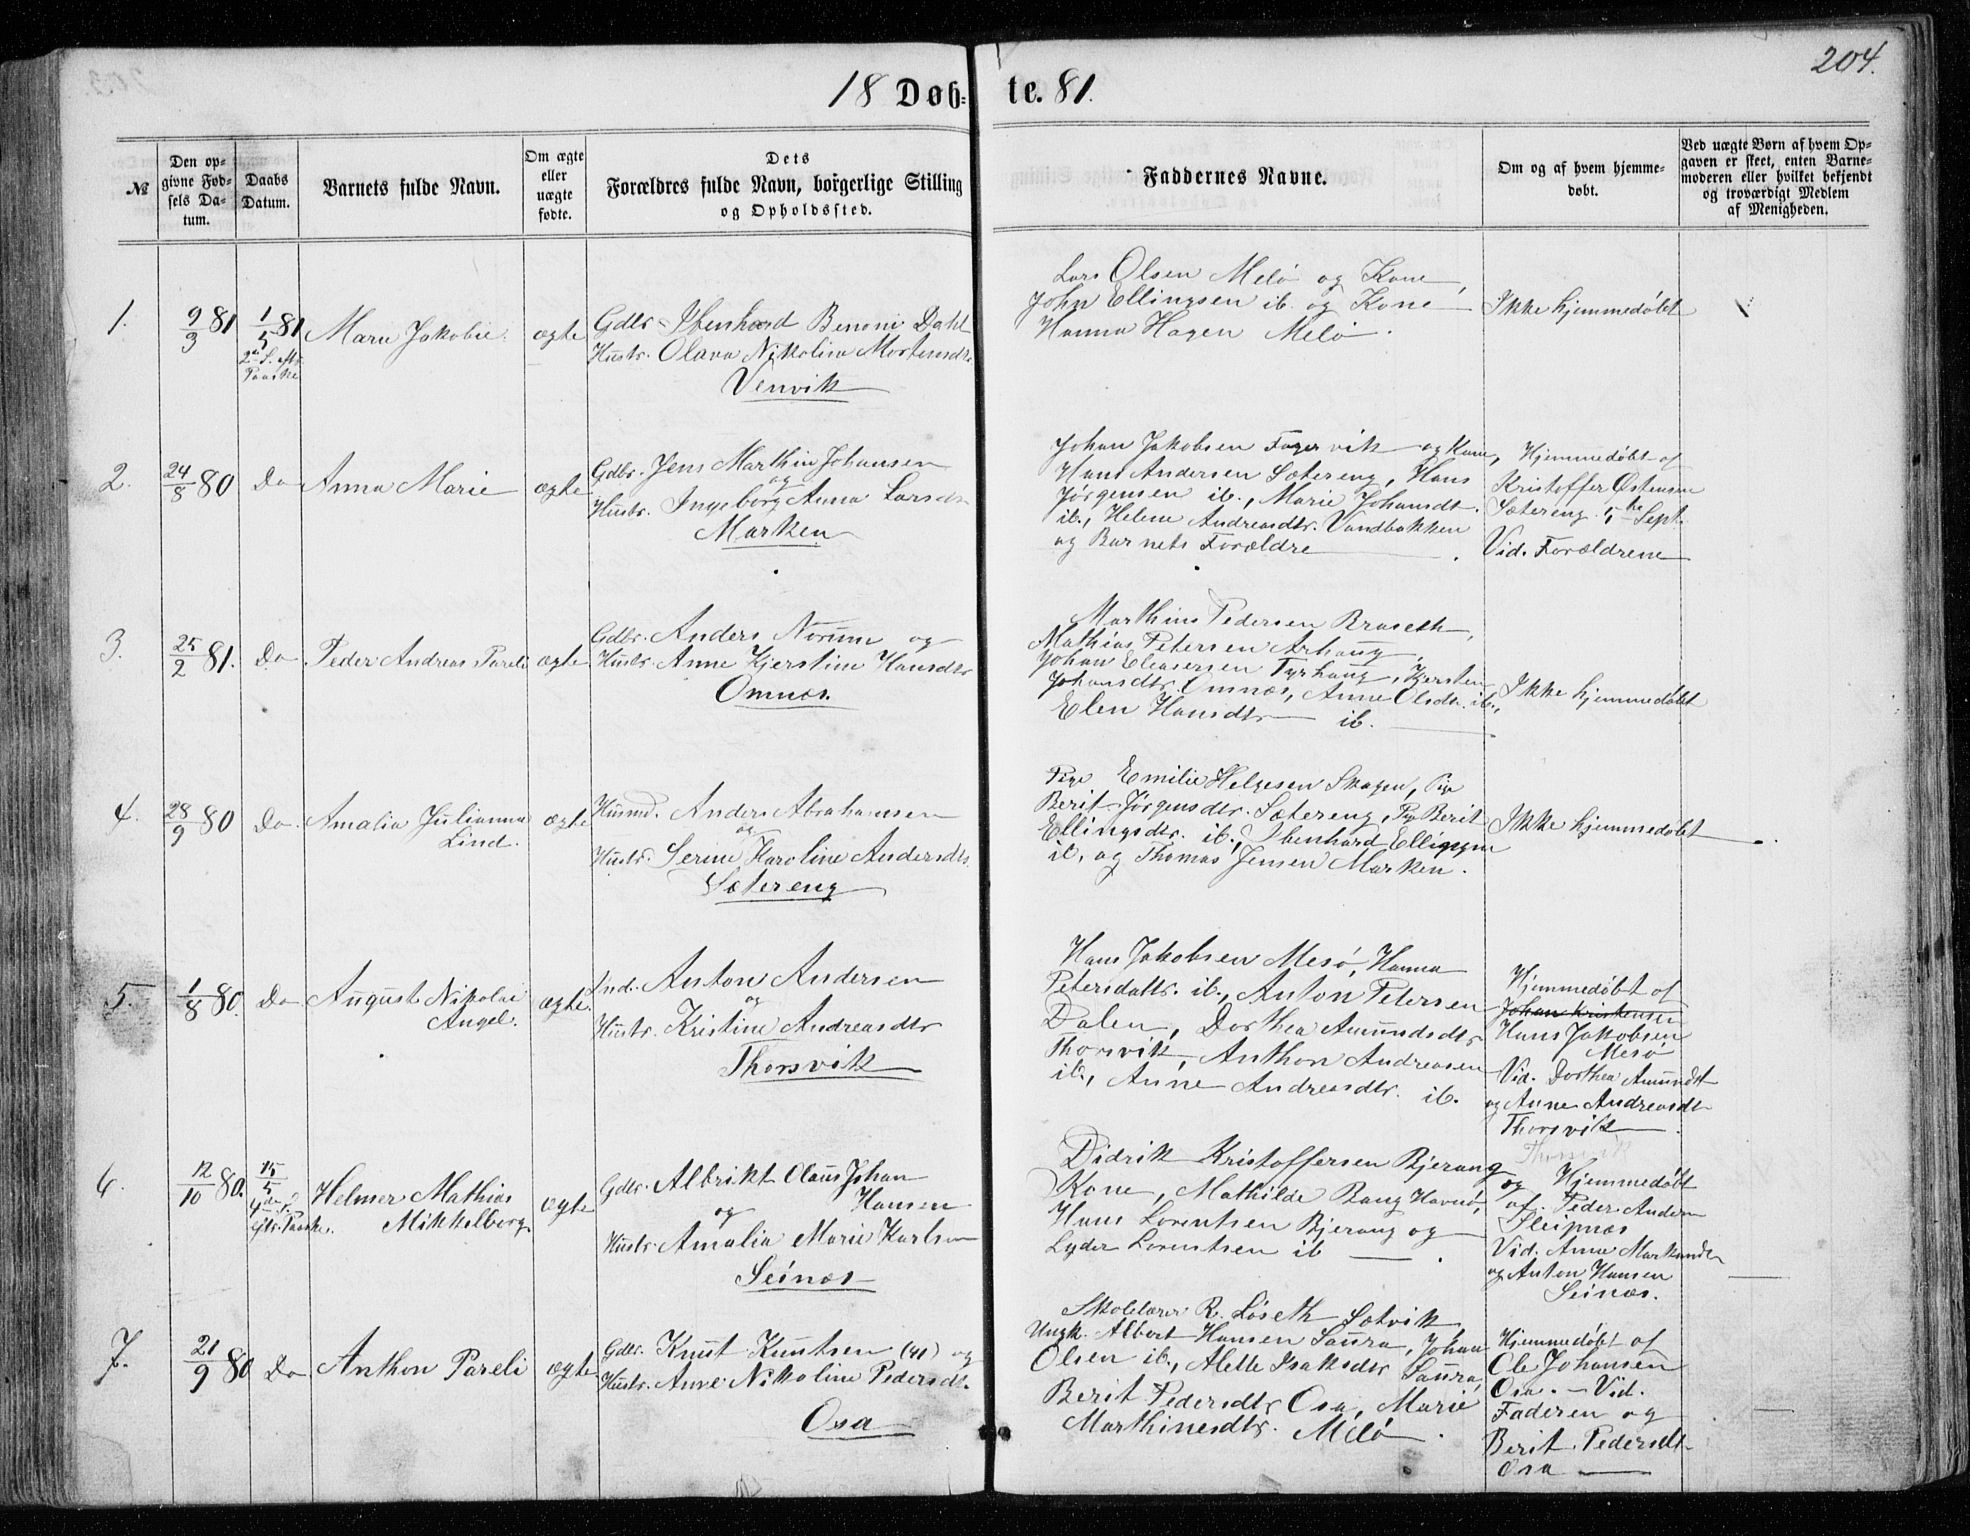 204.
18 Døb= te. 81.
№
Den op-
givne Fød-
sels Da-
tum.
Daabs
Datum.
Barnets fulde Navn.
Om ægte
eller
uægte
fødte.
Dets
Forældres fulde Navn, borgerlige Stilling
og Opholdssted.
Faddernes Navne.
Om og af hvem hjemme-
døbt.
Ved uægte Børn af hvem Op-
gaven er skeet, enten Barne-
moderen eller hvilket bekjendt
og troværdigt Medlem
af Menigheden.
1.
9/3 81
1/5 81
2den S. eft.
Paaske
Maru Jakobie
ægte
Gdbr. Ibenhard Benoni Dahl
Hustr. Olava Nikolina Mortensdtr
Venvik
Lars Olsen Melö og Kone,
John Ellingsen ib. og Kone
Hanna Hagen Melö.
Ikke hjemmedøbt
2.
24/8 80
Do
Anna Marie
ægte
Gdbr. Jens Marthin Johansen
og
Hustr. Ingeborg Anna Larsdtr
Marken
Johan Jakobsen Fagervik og Kone,
Hans Andersen Sætereng, Hans
Jörgensen ib., Marie Johansdt.
ib., Helene Andreasdtr. Vandbakken
og Barnets Forældre
Hjemmedøbt af
Kristoffer Østensen
Sætereng 5te Sept.
Vid. Forældrene
3.
25/2 81.
Do
Peder Andreas Pareli
ægte
Gdbr. Anders Norum og
Hustr. Anne Kjerstine Hansdtr
Omnæs.
Marthin Pedersen Braseth,
Mathias Petersen Arhaug,
Johan Eliasersen Tyrhaug, Kjersten
Johansdtr. Omnæs, Anne Olsdtr. ib.,
Elen Hansdtr ib.
Ikke hjemmedøbt
4.
28/9 80
Do.
Amalia Julianna
Lind.
ægte
Husmd. Anders Abrahamsen
og
Hustr. Serine Karoline Andersdtr.
Sætereng
Pige Emilie Helgesen Skagen, Pige
Berit Jörgensdtr. Sætereng, Pige Berit
Ellingsdtr. ib., Ibenhard Ellingsen
ib. og Thomas Jensen Marken.
Ikke hjemmedøbt
5.
1/8 80.
Do
August Nikolai
Angel.
ægte.
Ind. Anton Andersen
og
Hustr. Kristine Andreasdtr
Thorsvik
Hans Jakobsen Mesö, Hanna
Petersdattr. ib., Anton Petersen
Dalen, Dorthea Amundsdtr
Thorsvik, Anthon Andreasen
ib., Anne Andreasdtr. ib.
Hjemmedøbt af
Johan Kristensen
Hans Jakobsen
Mesö
Vid. Dorthea Amundsdt
og Anne Andreasdt
Thorsvik
6.
12/10 80.
15/5
4de S.
eft. Paaske.
Helmer Mathias
Mikkelborg
ægte
Gdbr. Albrikt Olaus Johan
Hansen
og
Hustr. Amalia Marie Karlsen
Seines
Didrik Kristoffersen Bjerang og
Kone, Mathilde Bang Havnö,
Hans Lorentsen Bjerang og
Lyder Lorentsen ib
Hjemmedøbt
af Peder Andersen
Sleipnæs
Vid. Anne
og Anton Hansen
Seines.
7.
21/9 80
Do
Anthon Pareli
ægte
Gdbr. Knut Knutsen (41) og
Hustr. Anne Nikoline Pedersdt.
Osa
Skolelærer R. Löseth Sætvik,
Ungk. Albert Hansen Saura, Johan
Olsen ib., Alette Isaksdtr Saura,
Berit Pedersdtr Osa, Marie
Marthinesdtr. Melö.
Hjemmedøbt af
Ole Johansen
Osa. - Vid.
Faderen og
Berit Pedersdt
Osa